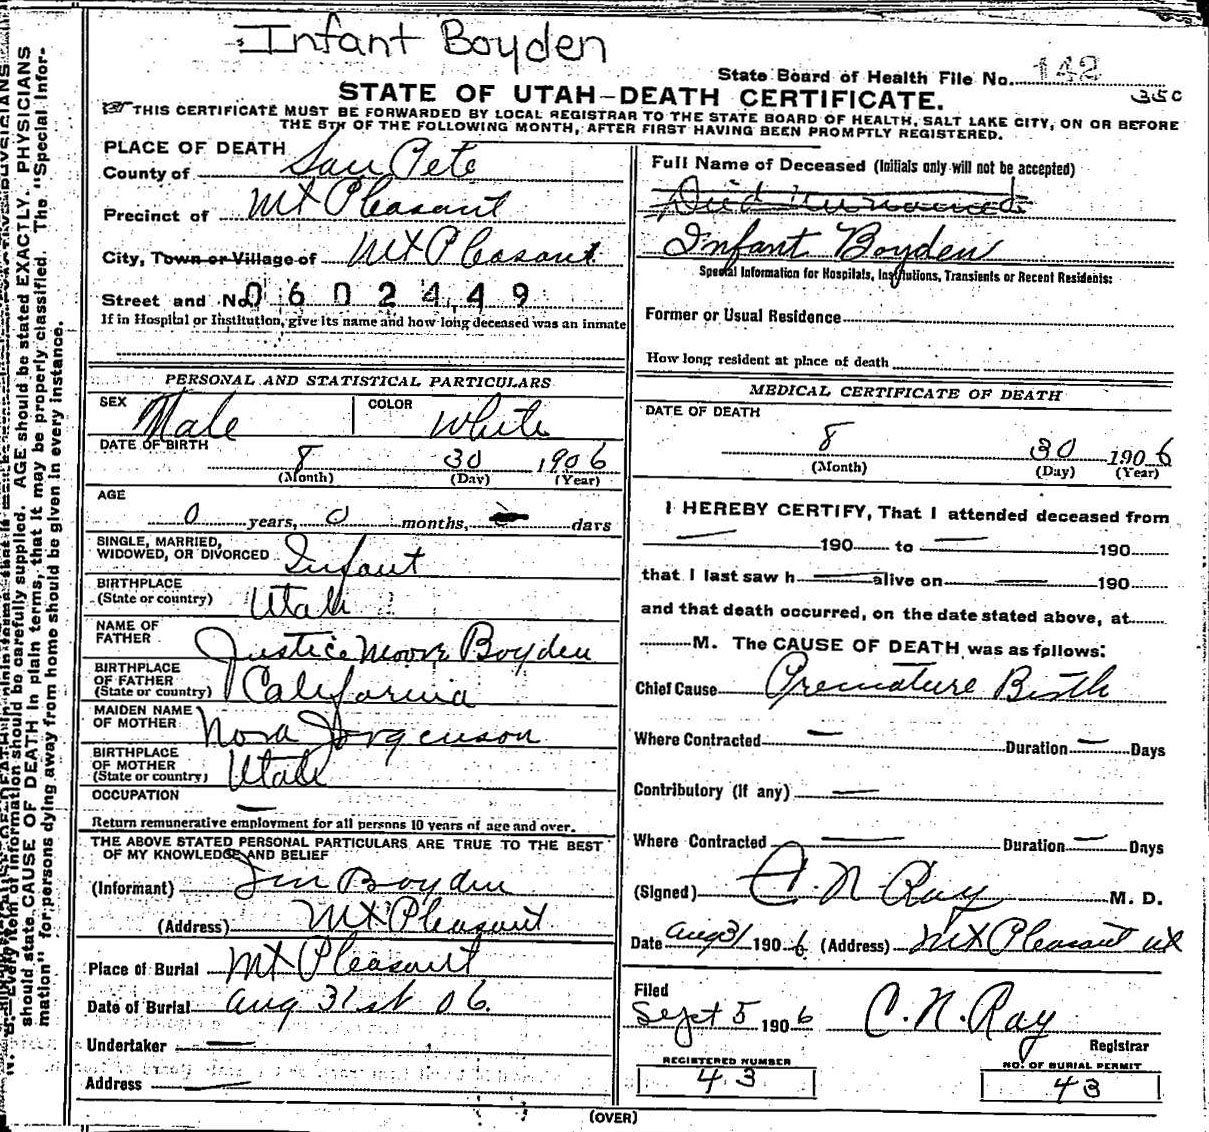 Infant Boyden
State Board of Health File No. 142
35c
STATE OF UTAH-DEATH CERTIFICATE.
THIS CERTIFICATE MUST BE FORWARDED BY LOCAL REGISTRAR TO THE STATE BOARD OF HEALTH, SALT LAKE CITY, ON OR BEFORE
THE 5TH OF THE FOLLOWING MONTH, AFTER FIRST HAVING BEEN PROMPTLY REGISTERED.
PLACE OF DEATH
County of San Pete
Precinct of Mt Pleasant
City, Town or Village of Mt Pleasant
Street and No. 0602449
If in Hospital or Institution, give its name and how long deceased was an inmate
Full Name of Deceased (Initials only will not be accepted)
Died unnamed
Infant Boyden
Special Information for Hospitals, Institutions, Transients or Recent Residents:
Former or Usual Residence
How long resident at place of death
PERSONAL AND STATISTICAL PARTICULARS
SEX Male COLOR White
DATE OF BIRTH
8 30 1906
(Month) (Day) (Year)
AGE
0 years, 0 months, days
SINGLE, MARRIED,
WIDOWED, OR DIVORCED Infant
BIRTHPLACE
(State or country) Utah
NAME OF
FATHER Justice Moore Boyden
BIRTHPLACE
OF FATHER
(State or country) California
MAIDEN NAME
OF MOTHER Nora Jorgenson
BIRTHPLACE
OF MOTHER
(State or country) Utah
OCCUPATION
Return remunerative employment for all persons 10 years of age and over.
THE ABOVE STATED PERSONAL PARTICULARS ARE TRUE TO THE BEST
OF MY KNOWLEDGE AND BELIEF
(Informant) Jim Boyden
(Address) Mt Pleasant
Place of Burial Mt Pleasant
Date of Burial Aug 31st 06.
Undertaker —
Address —
MEDICAL CERTIFICATE OF DEATH
DATE OF DEATH
8 30 1906
(Month) (Day) (Year)
I HEREBY CERTIFY, That I attended deceased from
— 190 to — 190
that I last saw h — alive on — 190
and that death occurred, on the date stated above, at
M. The CAUSE OF DEATH was as follows:
Chief Cause Premature Birth
Where Contracted — Duration — Days
Contributory (if any) —
Where Contracted — Duration — Days
(Signed) C. N. Ray M. D.
Date Aug 31 1906 (Address) Mt Pleasant ut
Filed
Sept 5 1906 C. N. Ray
Registrar
REGISTERED NUMBER
43
NO. OF BURIAL PERMIT
43
(OVER)
should state CAUSE OF DEATH in plain terms, that it may be properly classified. The "Special Infor-
mation" for persons dying away from home should be given in every instance.